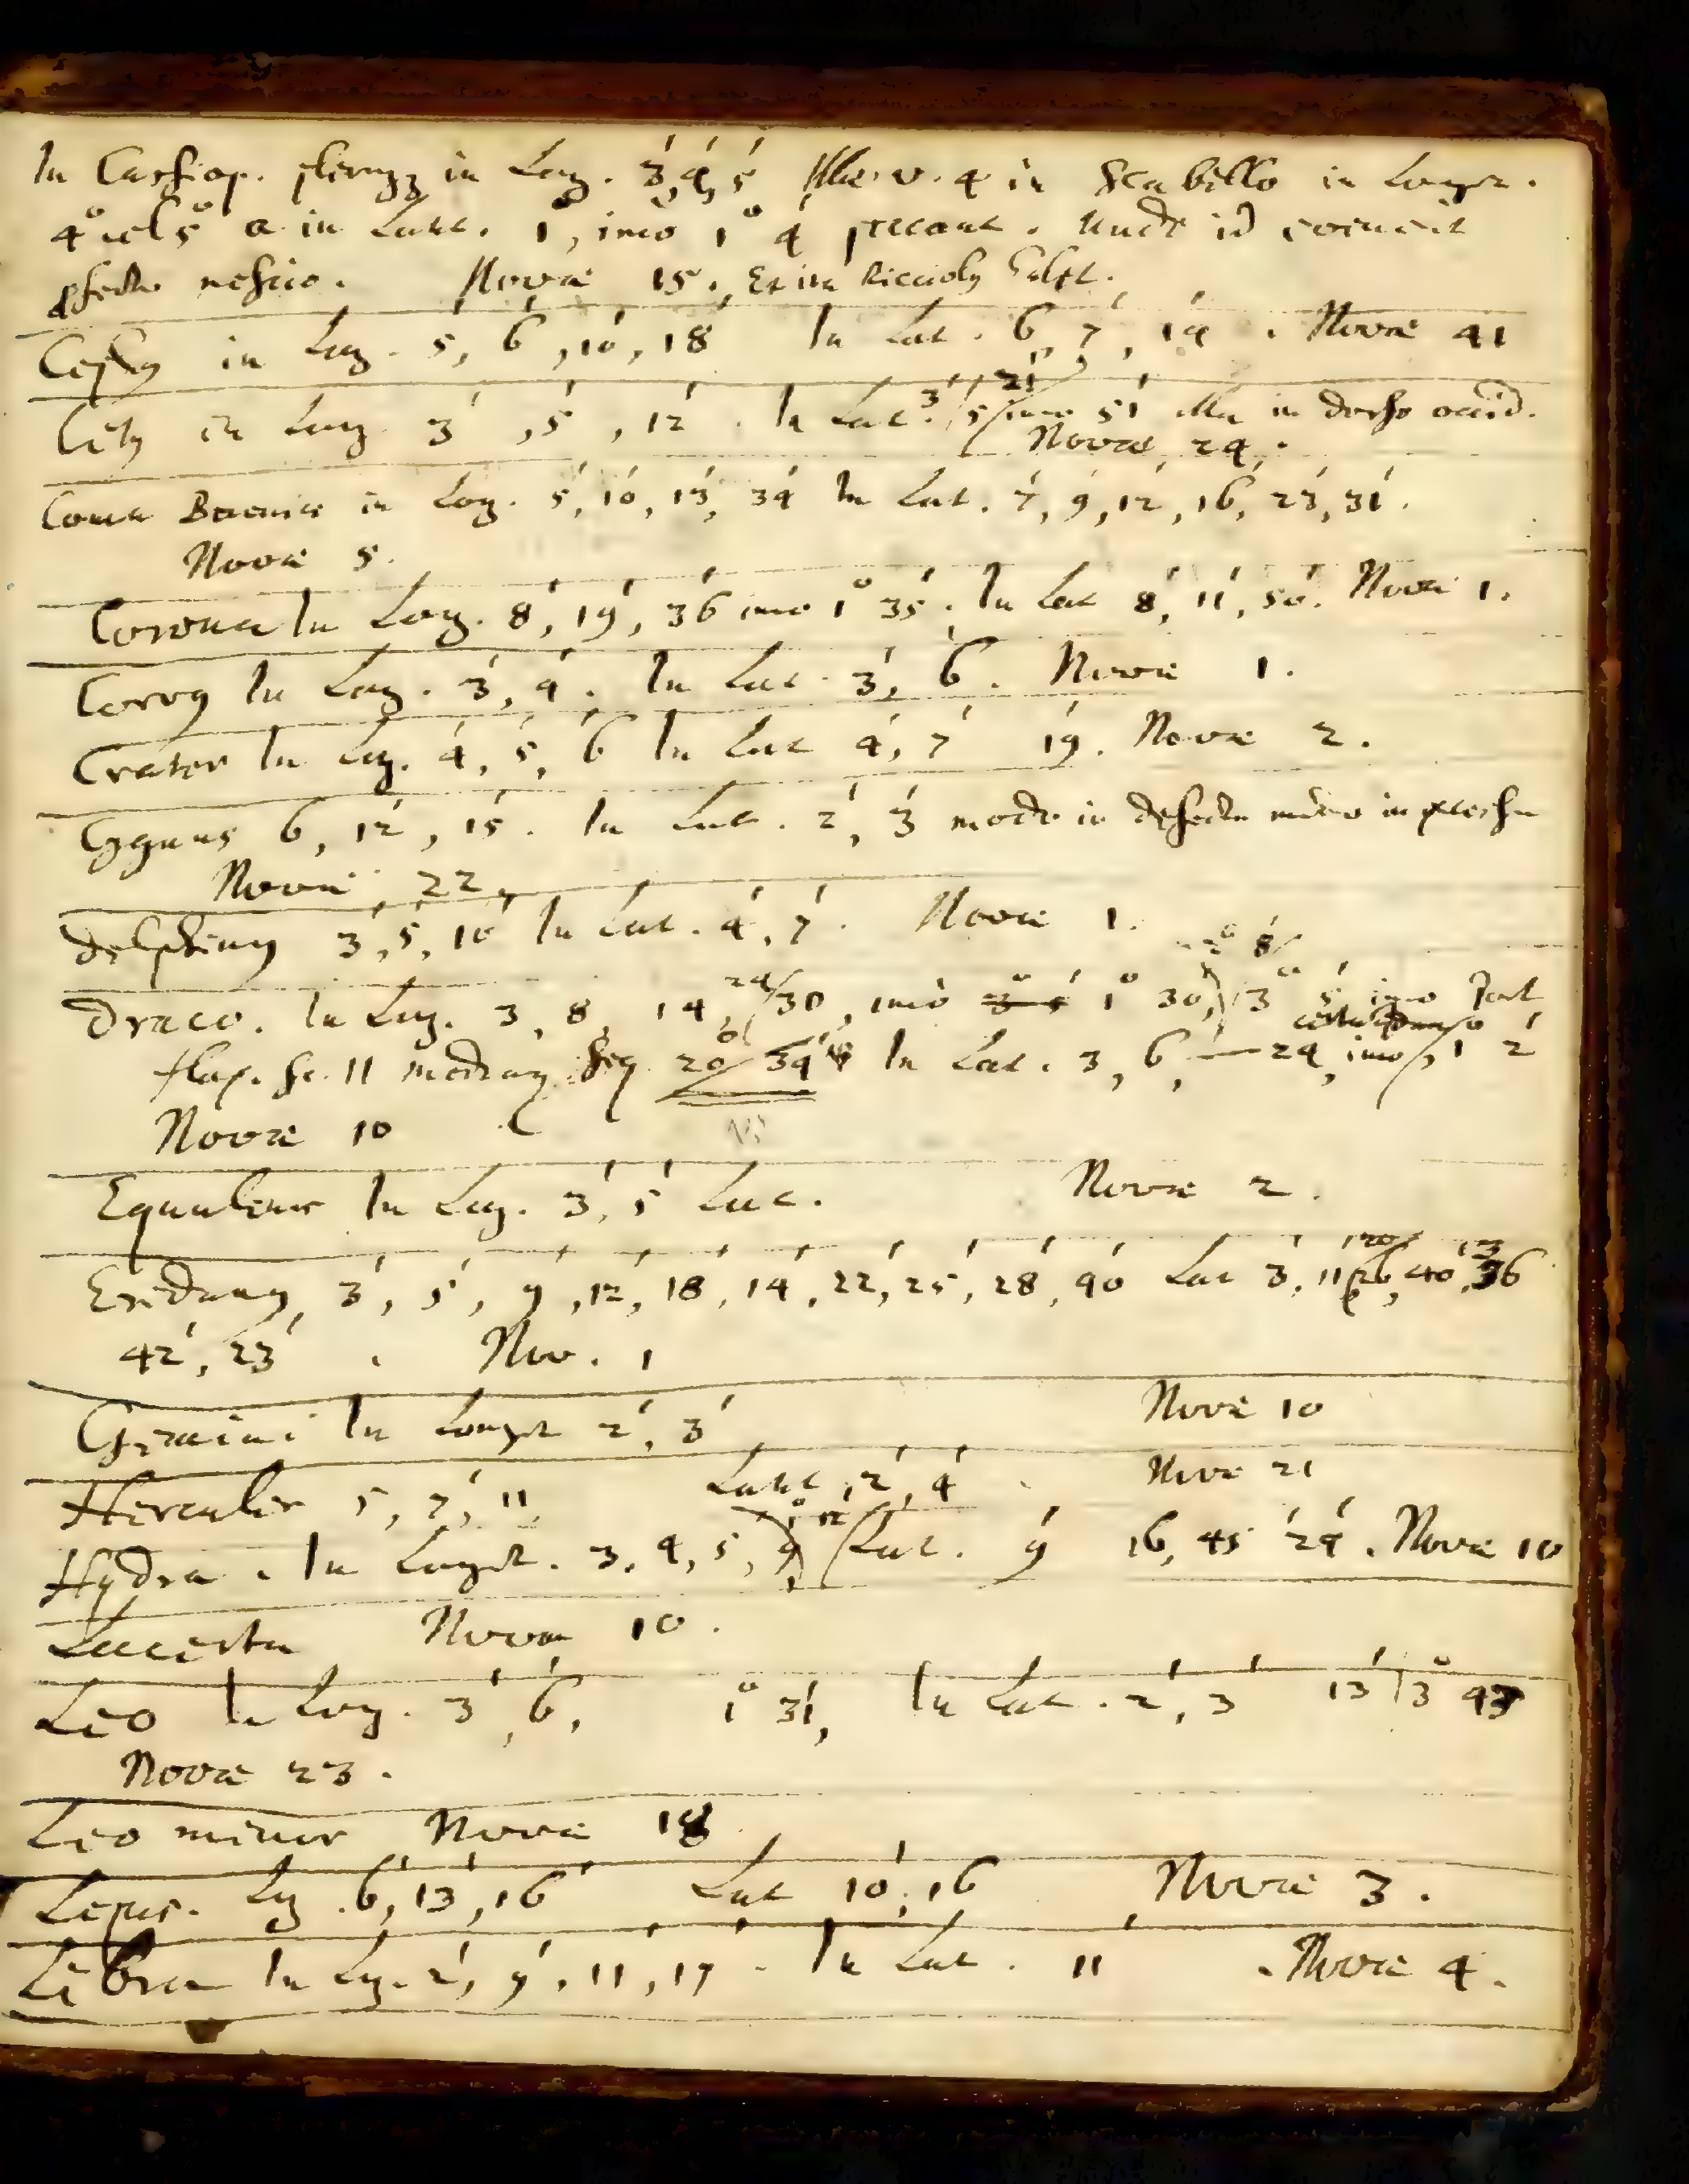 In Cassiop. plerumq in Long. 3', 4', 5' Illa. v. 4 in Scabello in Longit.
4° vel 5° in Latit. 1', imo 1° 4' peccant. Unde id evenerit
nescio. Novæ 15. Et ita Ricciolij
in Long. 5', 6', 10', 18' In Lat. 6', 7', 14'. Novæ 41
in Long. 3', 5', 12'. In Lat. 3' imo 51' illa in dorso occid.
Novæ 24.
Coma Berenic in Long. 5', 10', 13', 34' In Lat. 7', 9', 12', 16', 23', 31'.
Novæ 5.
Corona In Long. 8', 19', 36' imo 1° 35'. In Lat 8', 11', 50'. Novæ 1.
Corvq In Long. 3', 4'. In Lat. 3', 6'. Novæ 1.
Crater In Long. 4', 5', 6' In Lat 4', 7' 19'. Novæ 2.
Cygnus 6', 12', 15'. In Lat. 2', 3' modo in defectu modo in excessu
Novæ 22.
Delphinq 3', 5', 10' In Lat. 4', 7'. Novæ 1.
2° 8'
Draco. In Long. 3, 8, 14, 24/30, imo 1° 30' 3° 5' imo
11 In Lat. 3, 6, 24, imo 1° 2'
Novæ 10
Equuleus In Long. 3', 5' Lat. Novæ 2.
Eridanq 3', 5', 9', 12', 18', 14', 22', 25', 28', 40' Lat 3', 11', 26', 40', 36
42', 23'. Nov. 1
Gemini In Longit 2', 3' Novæ 10
Hercules 5, 7', 11 Latit 2', 4' Novæ 21
Hydra. In Longit. 3, 4, 5, 9 Lat. 9' 16, 45' 24'. Novæ 10
Lacerta Novæ 10.
Leo In Long. 3', 6', 1° 31', In Lat. 2', 3' 13' 3° 43
Novæ 23.
Leo minor Novæ 18
Lepus. Lg. 6', 13', 16' Lat 10', 16 Novæ 3.
Libra In Lg. 2', 9', 11', 17'. In Lat. 11'. Novæ 4.